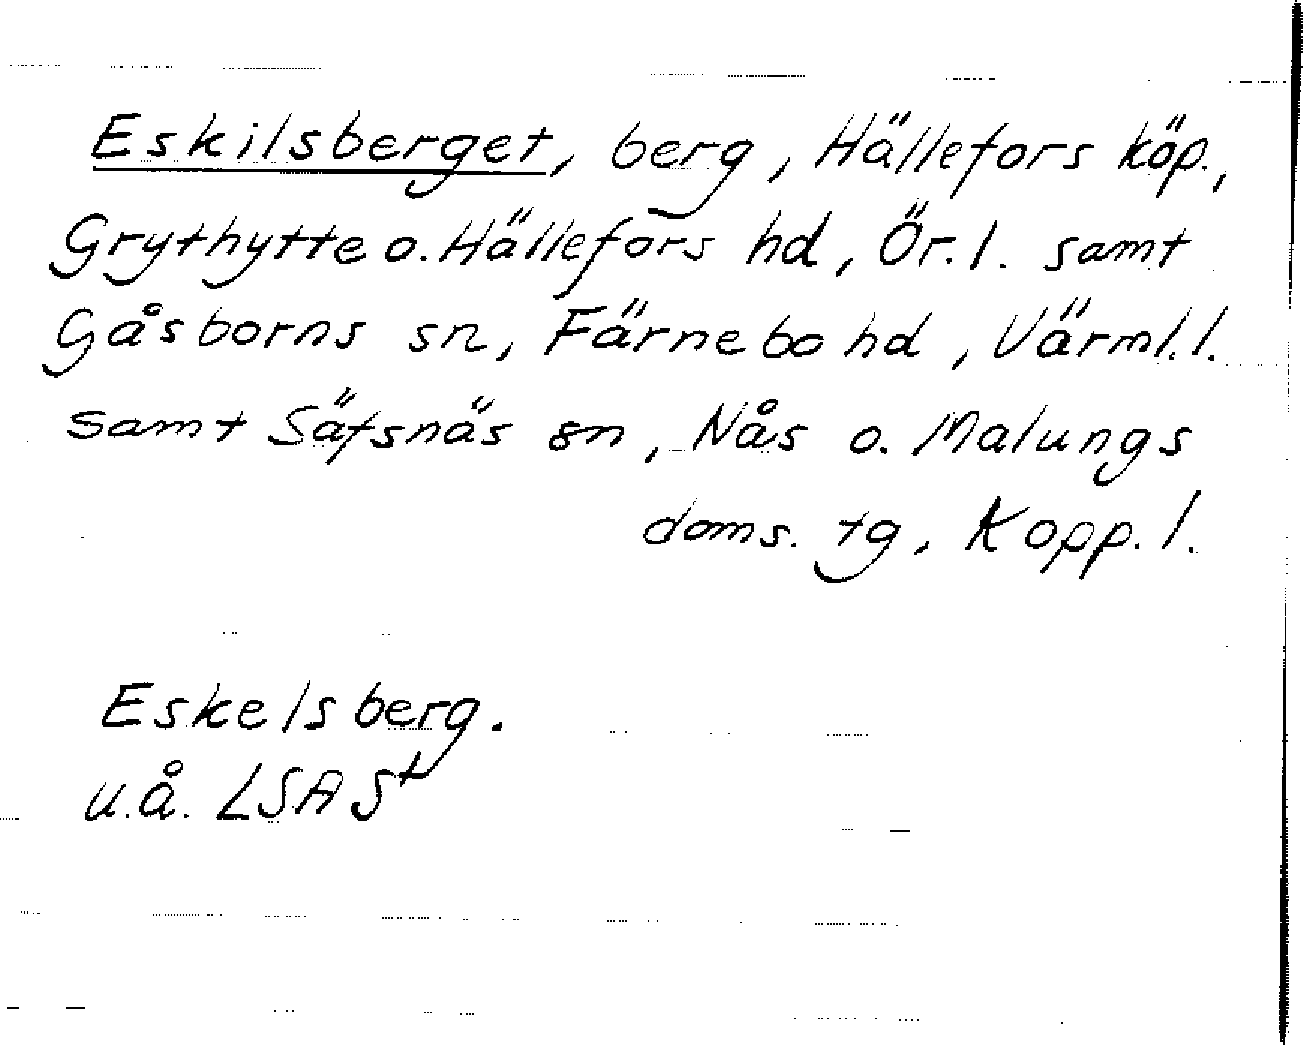 Eskilsberget, berg, Hällefors köp.,
Grythytte o. Hällefors hd, Ör. l. samt
Gåsborns sn, Färnebo hd, Värml. l.
samt Säfsnäs sn, Nås o. Malungs
doms. tg, Kopp. l.
Eskelsberg.
u.å. LSA St